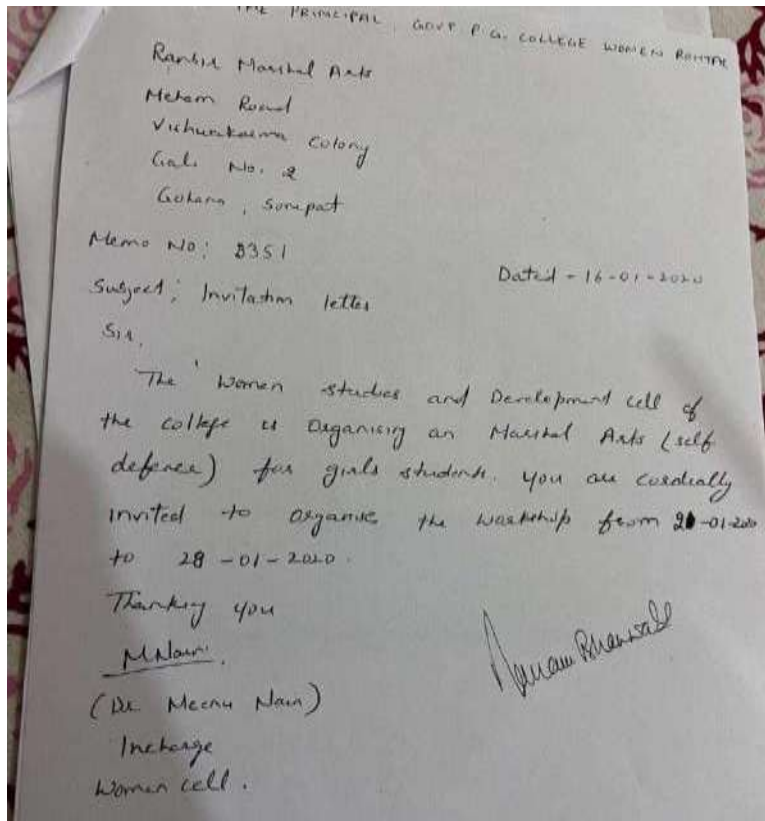 THE PRINCIPAL, GOVT P.G. COLLEGE WOMEN ROHTAK
Ranbir Marshal Arts
Meham Road
Vishunkarma Colony
Gali No. 2
Gohana, Sonepat
Memo No: 3351
Dated - 16-01-2020
Subject; Invitation letter
Sir,
The Women studies and Development cell of
the college is organising an Marshal Arts (self
defence) for girls students. You are cordially
invited to organise the workshop from 20-01-2020
to 28-01-2020.
Thanking you
MNain.
(Dr Meenu Nain)
Incharge
Women cell.